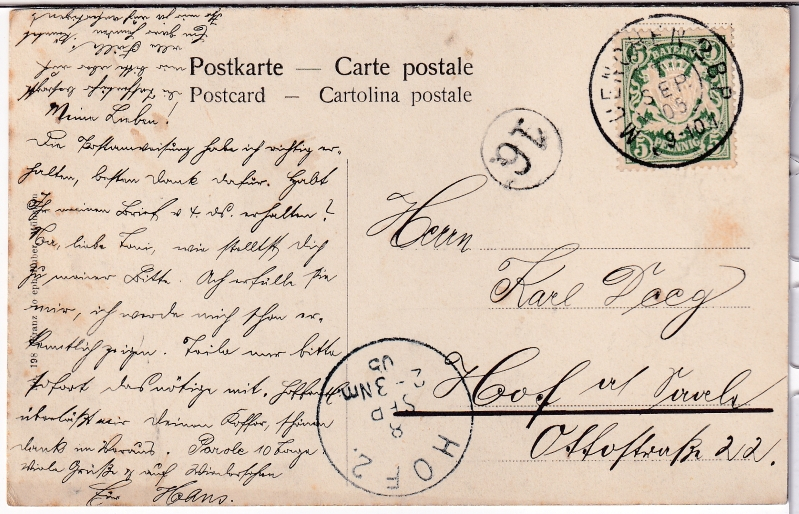 Postkarte — Carte postale
Postcard — Cartolina postale
Meine Lieben!
Die Postanweisung habe ich richtig er-
halten, besten Dank dafür. Habt
Ihr meinen Brief v 4. ds. erhalten?
Na, liebe Toni, wie stellst Dich
zu meiner Bitte. Ach erfülle sie
mir, ich werde mich schon er-
kenntlich zeigen. Teile mir bitte
sofort das nötige mit. Hoffentl.
überläßt mir Deinen Koffer, schönen
Dank im Voraus. Parole 10 Tage
Viele Grüße & auf Wiedersehen
Euer Hans.
Herrn
Karl Deeg
Hof a/ Saale
Ottostraße 22.
BAYERN
5 PFENNIG 5
MUENCHEN 2 B.P.
SEP
05
9-10
16
HOF 2.
8
SEP
2-3 Nm.
05
198 Franz Josef Huber, München